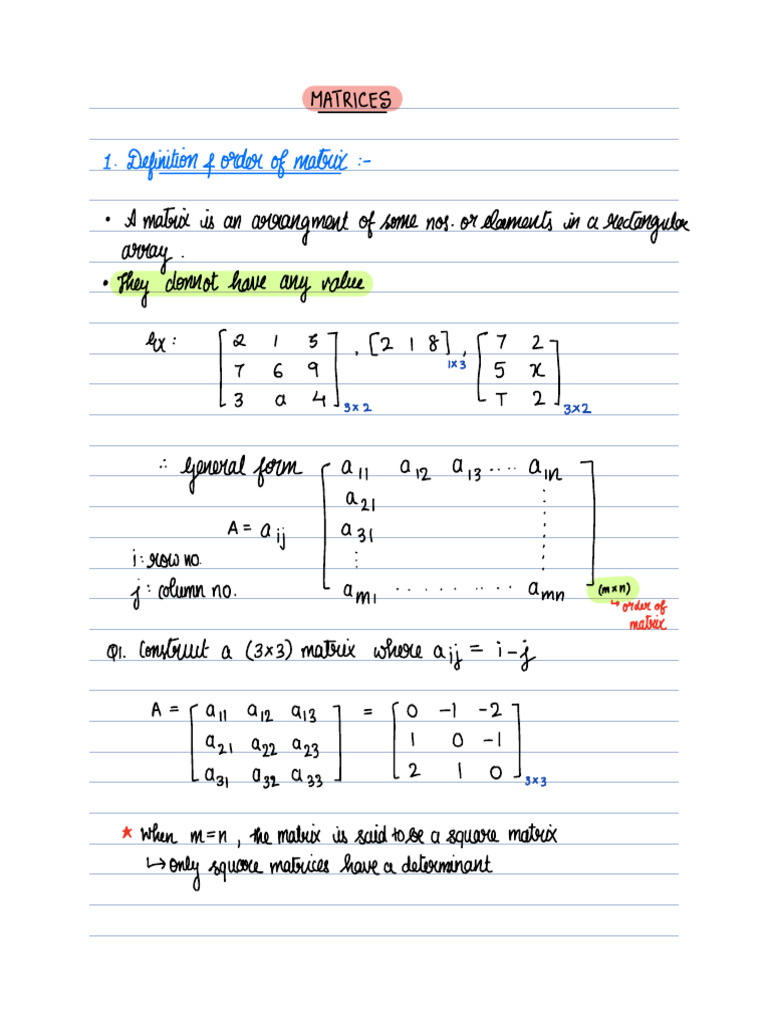 MATRICES
1. Definition & order of matrix :-
• A matrix is an arrangment of some nos. or elements in a rectangular
array .
• They donnot have any value
Ex : [ 2 1 5 , [ 2 1 8 ] 1×3 , [ 7 2
7 6 9 5 x
3 a 4 ] 3×2 T 2 ] 3×2
∴ General form [ a11 a12 a13 .... a1n
a21 ⋮
A = aij a31 ⋮
i : row no. ⋮ ⋮
j : column no. am1 ......... amn ] (m×n)
↳ order of
matrix
Q1. Construct a (3×3) matrix where aij = i-j
A = [ a11 a12 a13 = [ 0 -1 -2
a21 a22 a23 1 0 -1
a31 a32 a33 ] 2 1 0 ] 3×3
* When m=n , the matrix is said to be a square matrix
↳ only square matrices have a determinant